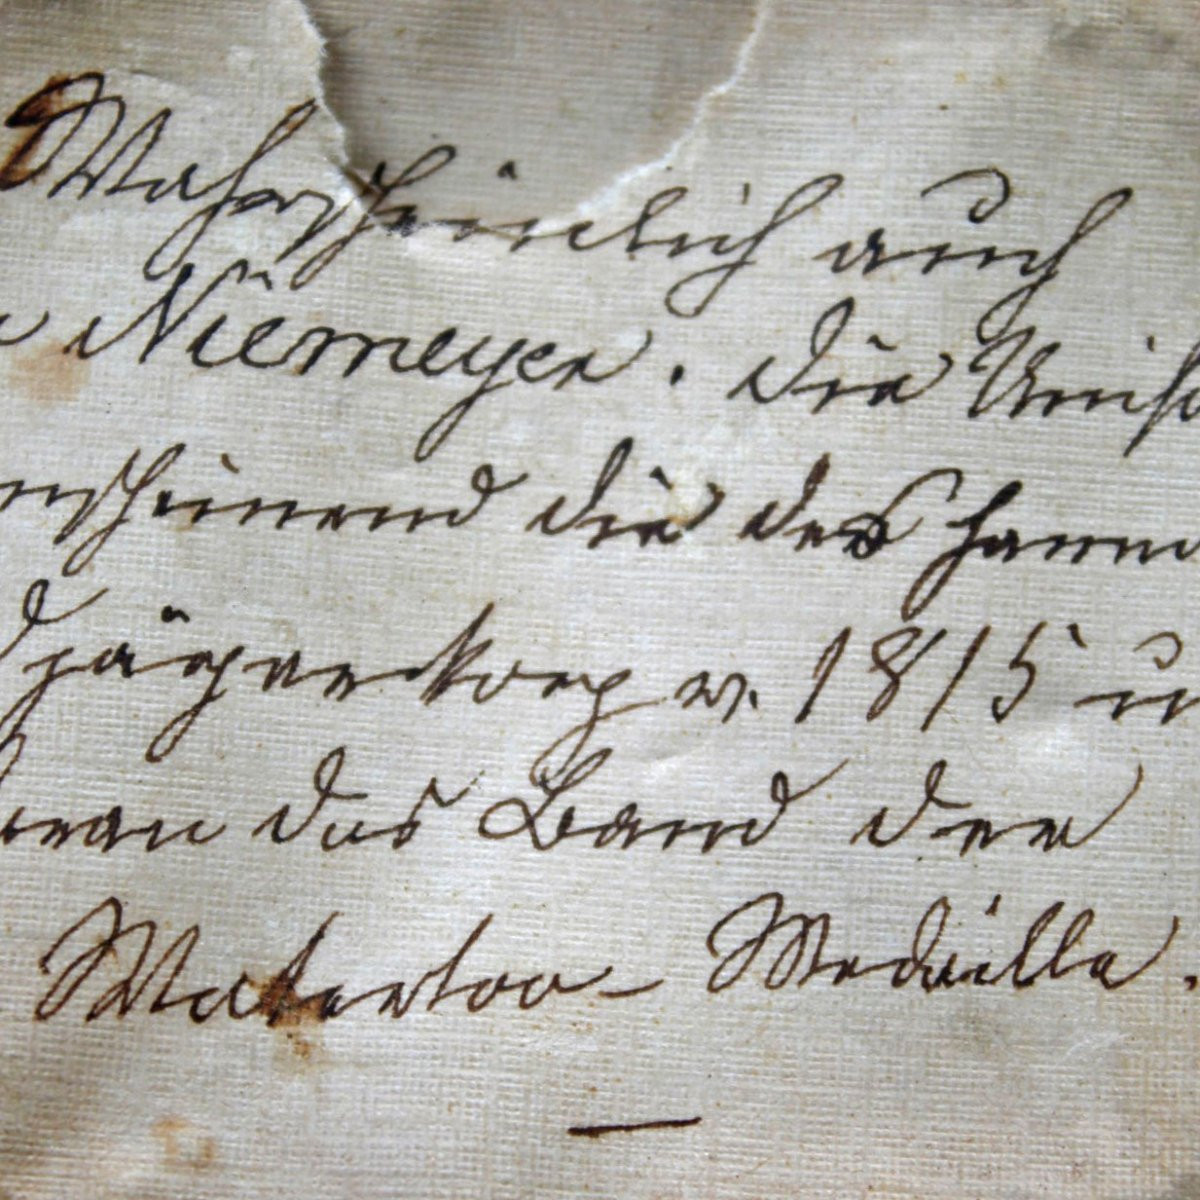 Wahrscheinlich auch
Niemeyer. Die Unifo
anscheinend die des hanno
djägerkorps v. 1815 u
daran das Band der
Waterloo-Medaille.